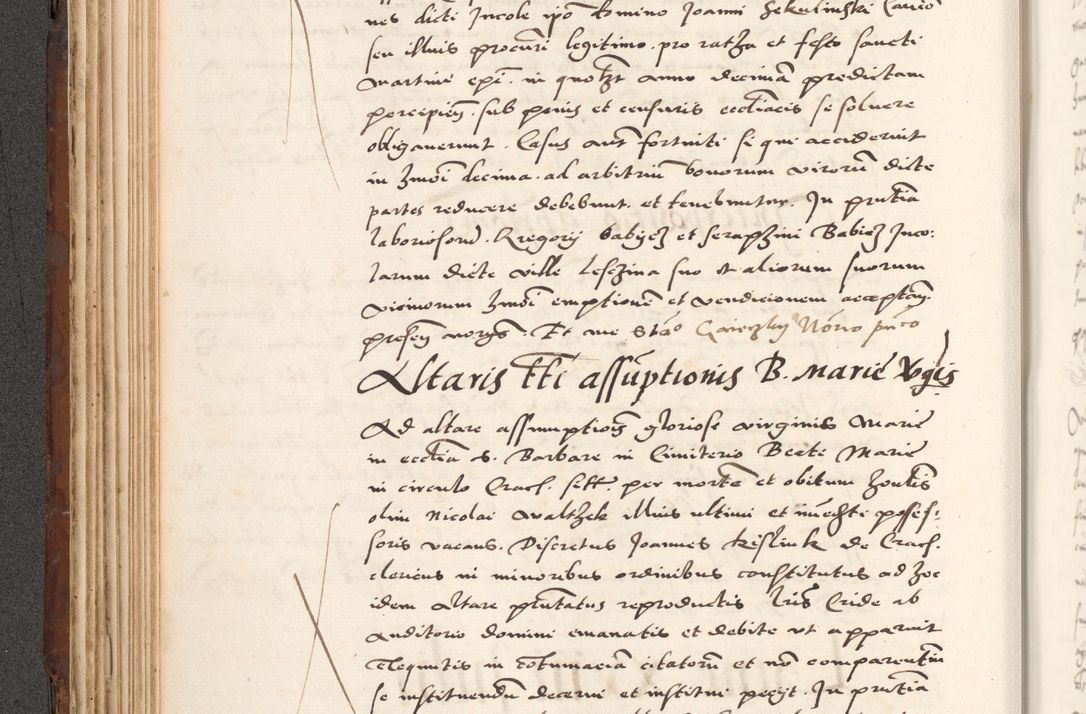 nes dicti Incole ipo domino Joanni Sekulinski Canoco
seu illius procuri legitimo pro ratha et festo sancti
Martini epi. in quotzt anno decimã predictam
percipien. sub penis et censuris eccliacis se soluere
obliganerunt. Casus aut fortuiti si qui acciderint
in hmoi decima. ad arbitriũ bonorum virorũ dicte
partes reducere debebunt. et tenebuntur. In pñtia
laboriosorũ. Gregorij babycz et seraphini Babicz Inco:
larum dicte ville Leschna suo et aliorum suorum
vicinorum hmoi emptionẽ et vendicionem acceptan.
presen norgs. Et me Stão Notrio pñco
Altaris tti assũptionis B. Marie Vgis
Ad altare assumptionis gloriose virginis Marie
in ecclia S. Barbare in Cimiterio Beate Marie
in circulo Crac. sett. per mortẽ et obitum honlis
olim Nicolai Waltzek illius ultimi et inmediti posses:
soris vacans. Discretus Joannes Keslink de Crac.
clericus in minoribus ordinibus constitutus ad hoc
idem Altare pñtatus reproductis lris Cride ab
Auditorio domini emanatis et debite ut apparuit
exequutis in cõtumaciã citatorũ et nõ comparentiũ
se instituendũ decerni et institui pecijt. In pñtia